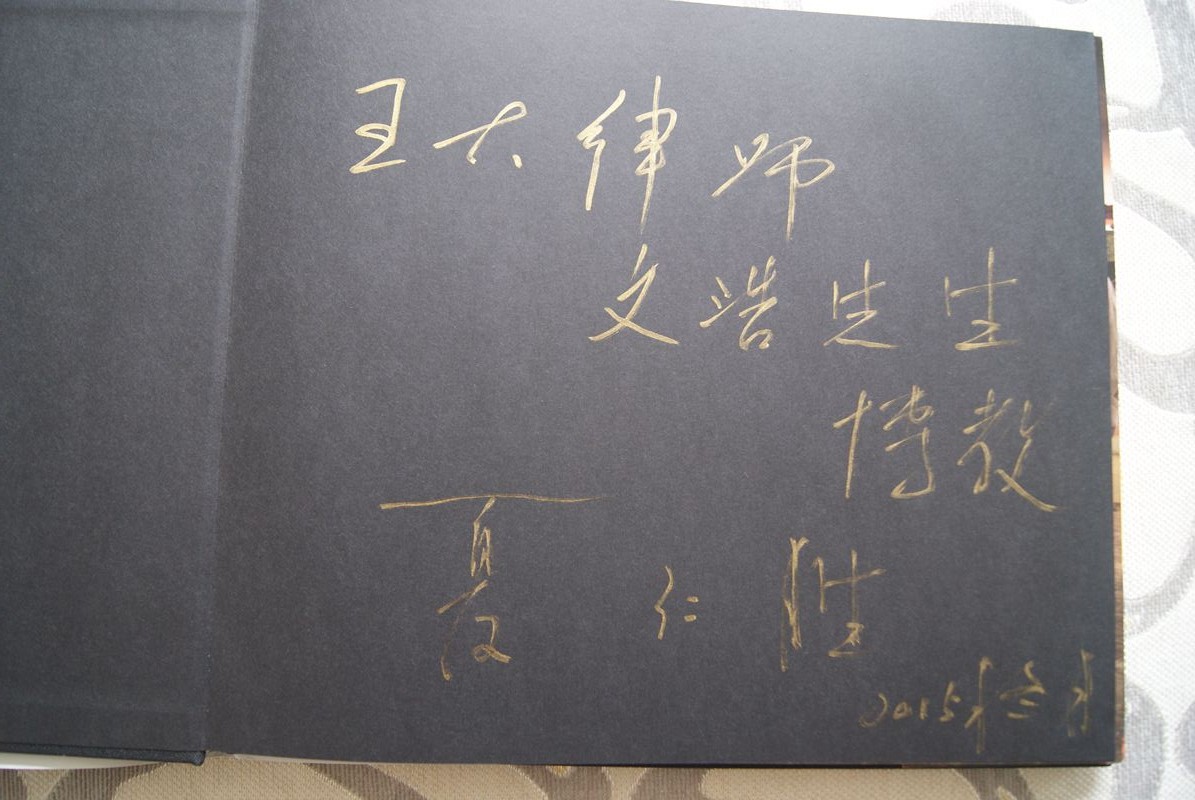 王大律师
文浩先生
博教
夏仁胜
2015年冬月